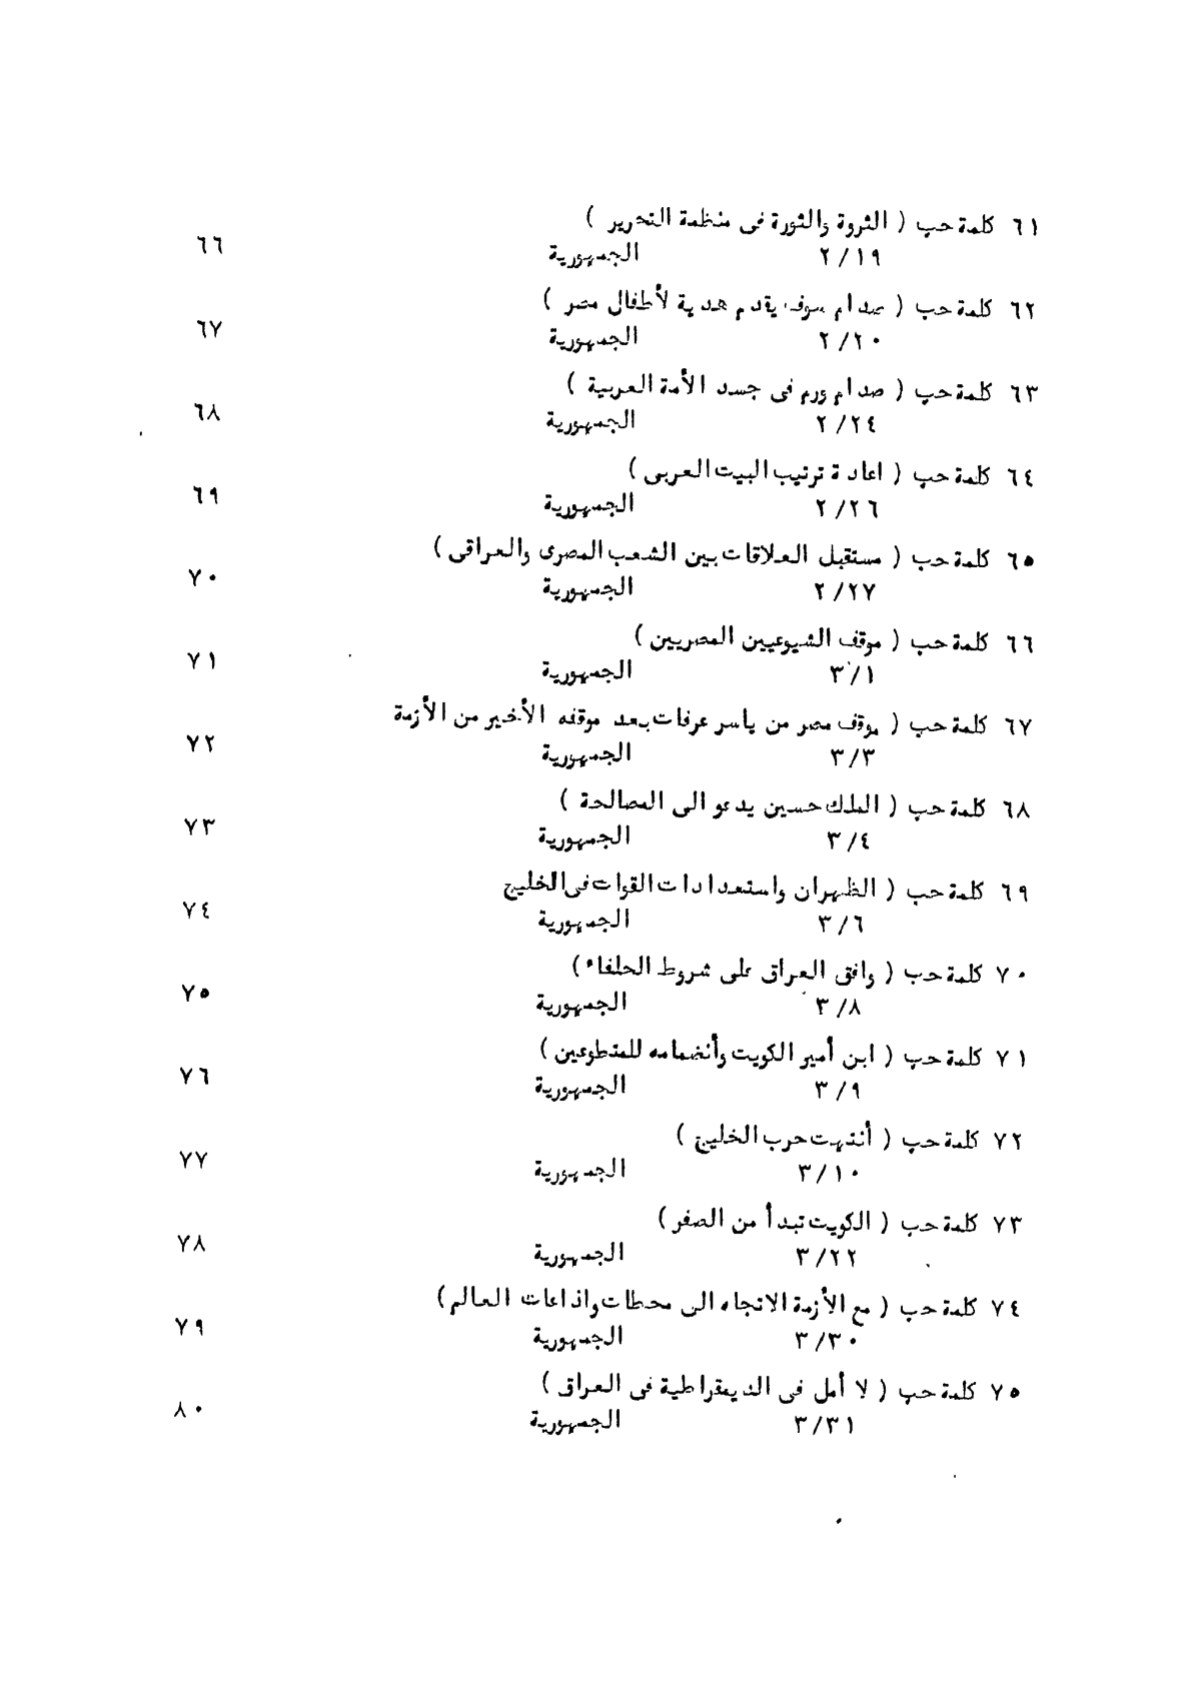 ٦١ كلمة حب ( الثروة والثورة فى منظمة التحرير )
٢/١٩ الجمهورية ٦٦
٦٢ كلمة حب ( صدام سوف يقدم هدية لأطفال مصر )
٢/٢٠ الجمهورية ٦٧
٦٣ كلمة حب ( صدام ورم فى جسد الأمة العربية )
٢/٢٤ الجمهورية ٦٨
٦٤ كلمة حب ( اعادة ترتيب البيت العربى )
٢/٢٦ الجمهورية ٦٩
٦٥ كلمة حب ( مستقبل العلاقات بين الشعب المصرى والعراقى )
٢/٢٧ الجمهورية ٧٠
٦٦ كلمة حب ( موقف الشيوعيين المصريين )
٣/١ الجمهورية ٧١
٦٧ كلمة حب ( موقف مصر من ياسر عرفات بعد موقفه الأخير من الأزمة
٣/٣ الجمهورية ٧٢
٦٨ كلمة حب ( الملك حسين يدعو الى المصالحة )
٣/٤ الجمهورية ٧٣
٦٩ كلمة حب ( الظهران واستعدادات القوات فى الخليج
٣/٦ الجمهورية ٧٤
٧٠ كلمة حب ( وافق العراق على شروط الحلفاء )
٣/٨ الجمهورية ٧٥
٧١ كلمة حب ( ابن أمير الكويت وأنضمامه للمتطوعين )
٣/٩ الجمهورية ٧٦
٧٢ كلمة حب ( أنتهت حرب الخليج )
٣/١٠ الجمهورية ٧٧
٧٣ كلمة حب ( الكويت تبدأ من الصفر )
٣/٢٢ الجمهورية ٧٨
٧٤ كلمة حب ( مع الأزمة الاتجاه الى محطات واذاعات العالم )
٣/٣٠ الجمهورية ٧٩
٧٥ كلمة حب ( لا أمل فى الديمقراطية فى العراق )
٣/٣١ الجمهورية ٨٠